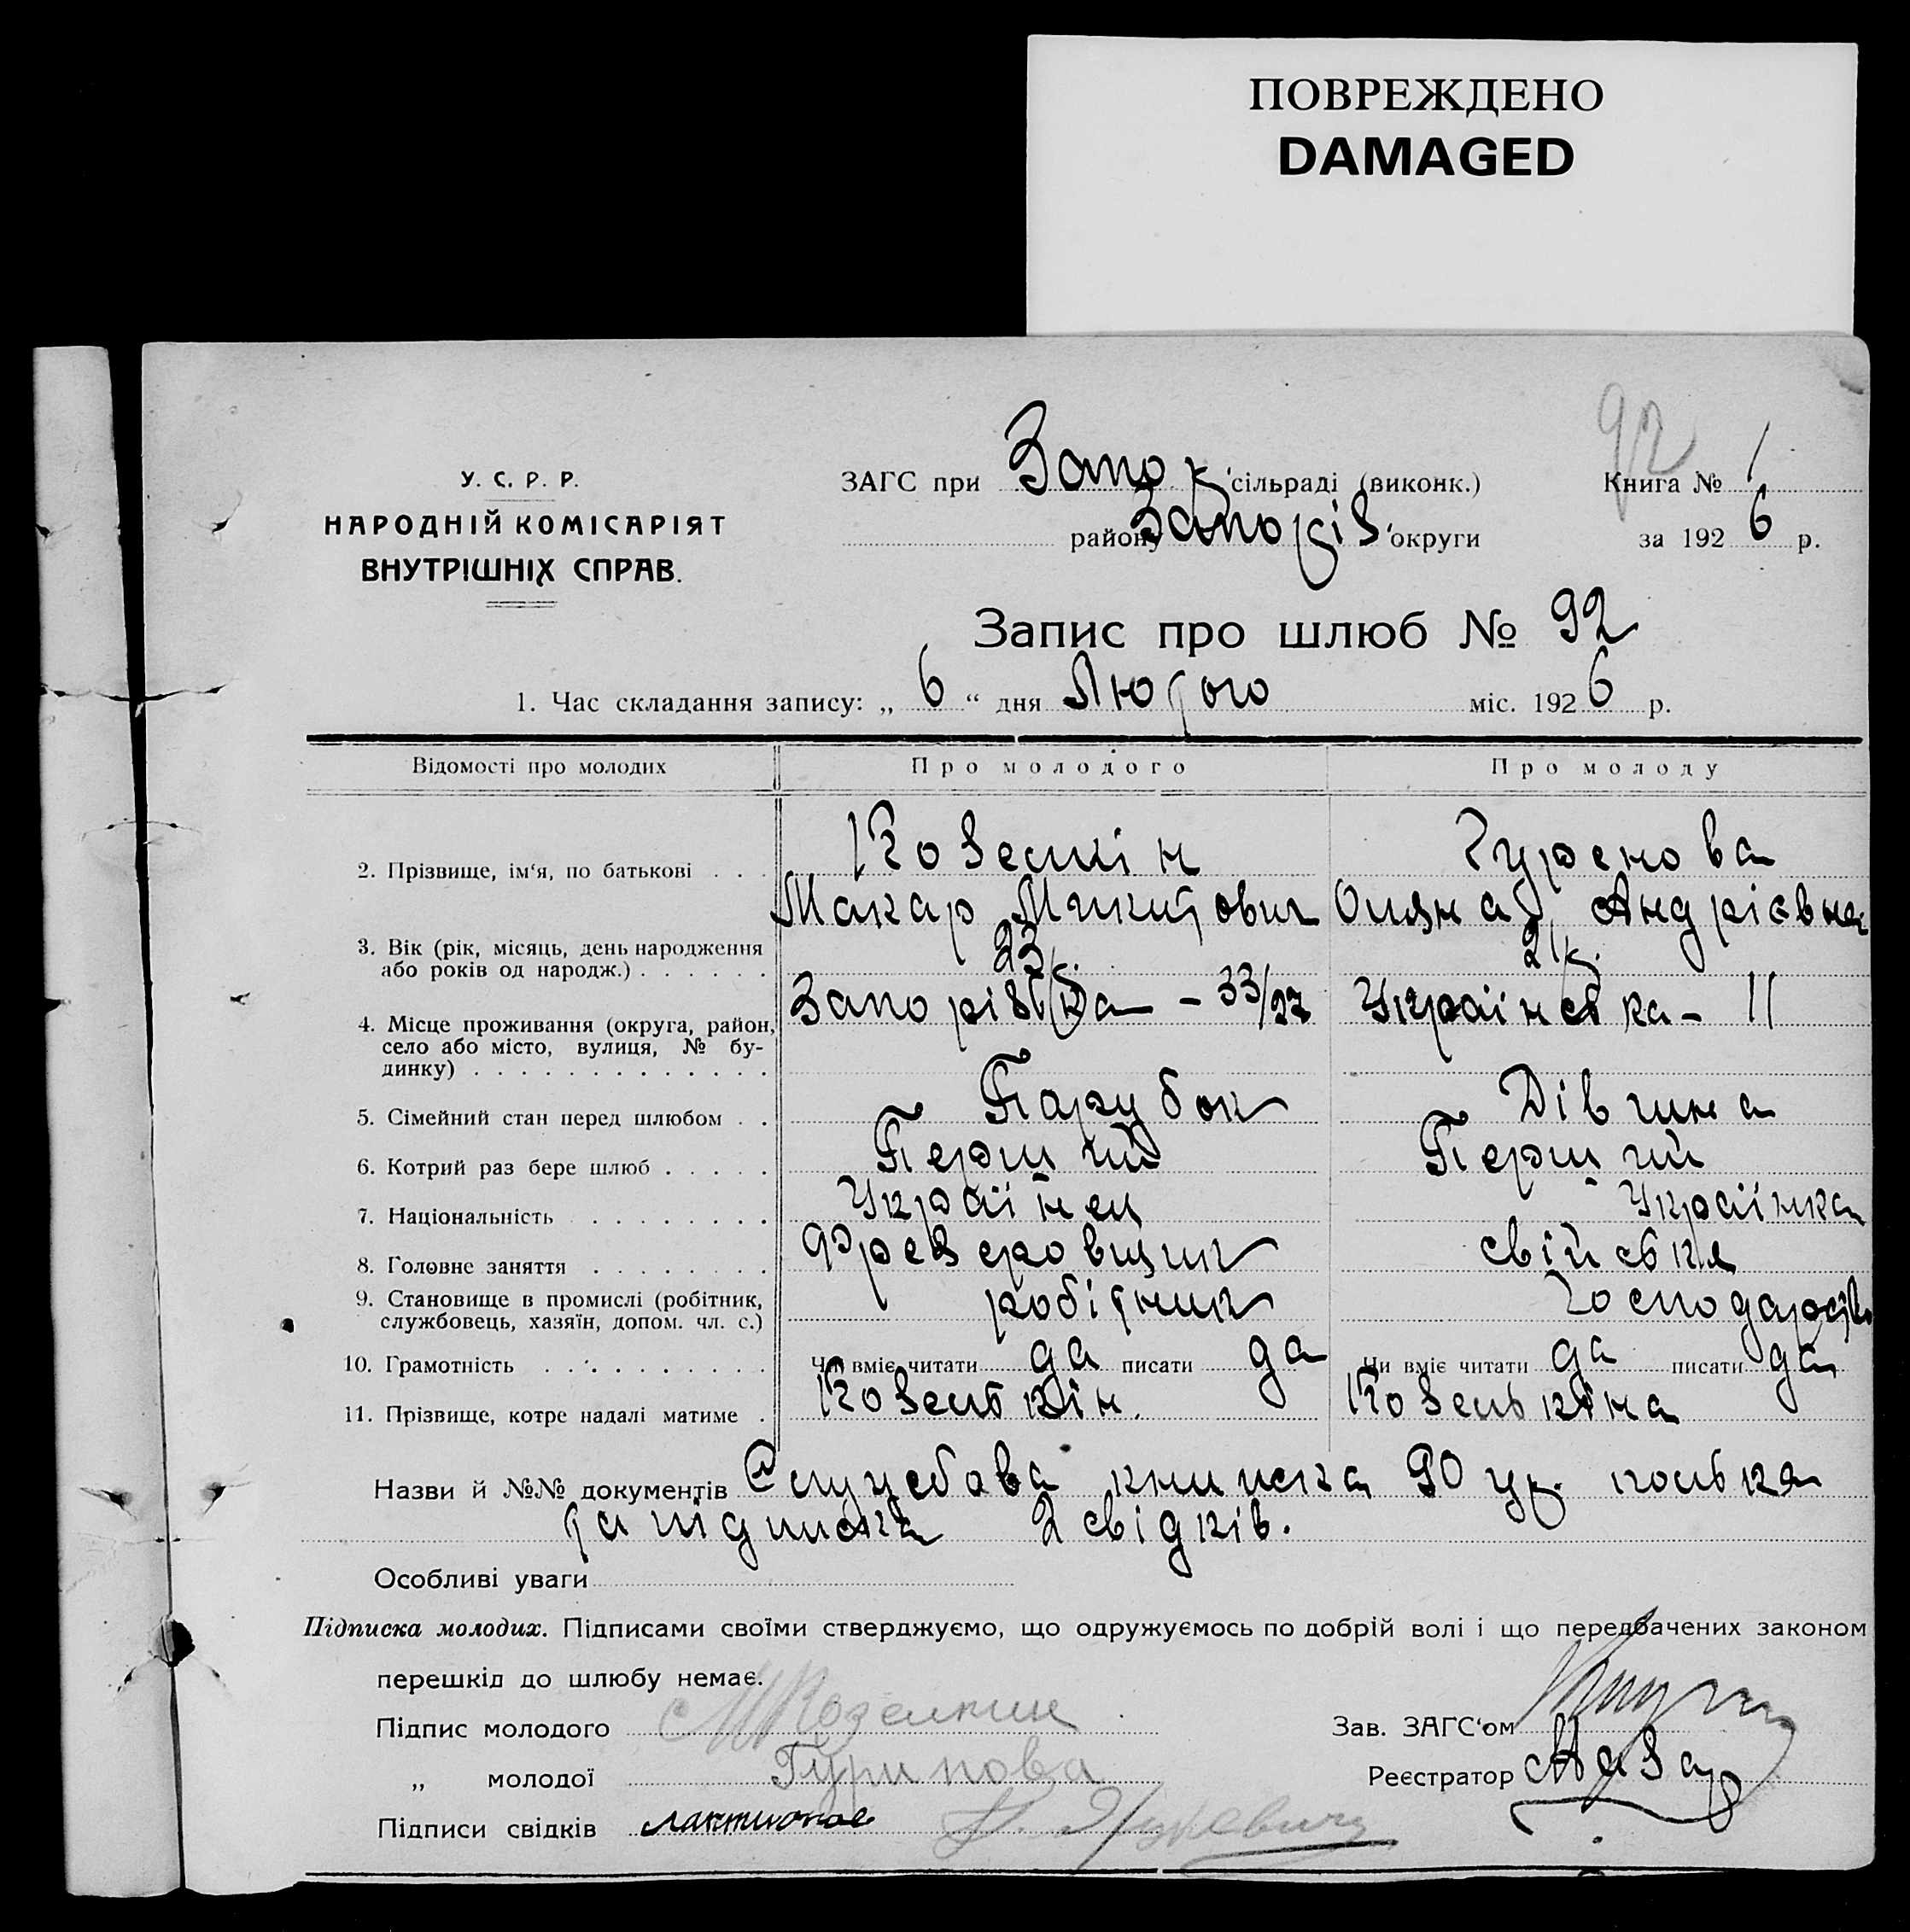 ПОВРЕЖДЕНО
DAMAGED
92
У. С. Р. Р.
НАРОДНІЙ КОМІСАРІЯТ
ВНУТРІШНІХ СПРАВ.
ЗАГС при Запор. сільраді (виконк.)
району Запоріз. округи
Книга № 1
за 1926 р.
Запис про шлюб № 92
1. Час складання запису: „ 6 “ дня Лютого міс. 1926 р.
Відомості про молодих Про молодого Про молоду
2. Прізвище, ім‘я, по батькові . . . Козелкін Гуренова
Макар Микитович Андрієвна
3. Вік (рік, місяць, день народження
або років од народж.) . . . . . . 23 р. 21 р.
4. Місце проживання (округа, район,
село або місто, вулиця, № бу-
динку) . . . . . . . . . . . . . - 33/27 Українська - 11
5. Сімейний стан перед шлюбом . . Парубок Дівчина
6. Котрий раз бере шлюб . . . . . Перший Перший
7. Національність . . . . . . . . Українец Українка
8. Головне заняття . . . . . . . . Фрезеровщик свійське
9. Становище в промислі (робітник,
службовець, хазяїн, допом. чл. с.) робітник господарство
10. Грамотність . . . . . . . . . Чи вміє читати да писати да Чи вміє читати да писати да
11. Прізвище, котре надалі матиме . Козелькін. Козелькіна
Назви й №№ документів Служебова книжка 90 полька
та підписка 2 свідків.
Особливі уваги
Підписка молодих. Підписами своїми стверджуємо, що одружуємось по добрій волі і що передбачених законом
перешкід до шлюбу немає.
Підпис молодого МКозелкин
„ молодої Гуринова
Підписи свідків
Зав. ЗАГС‘ом
Реєстратор